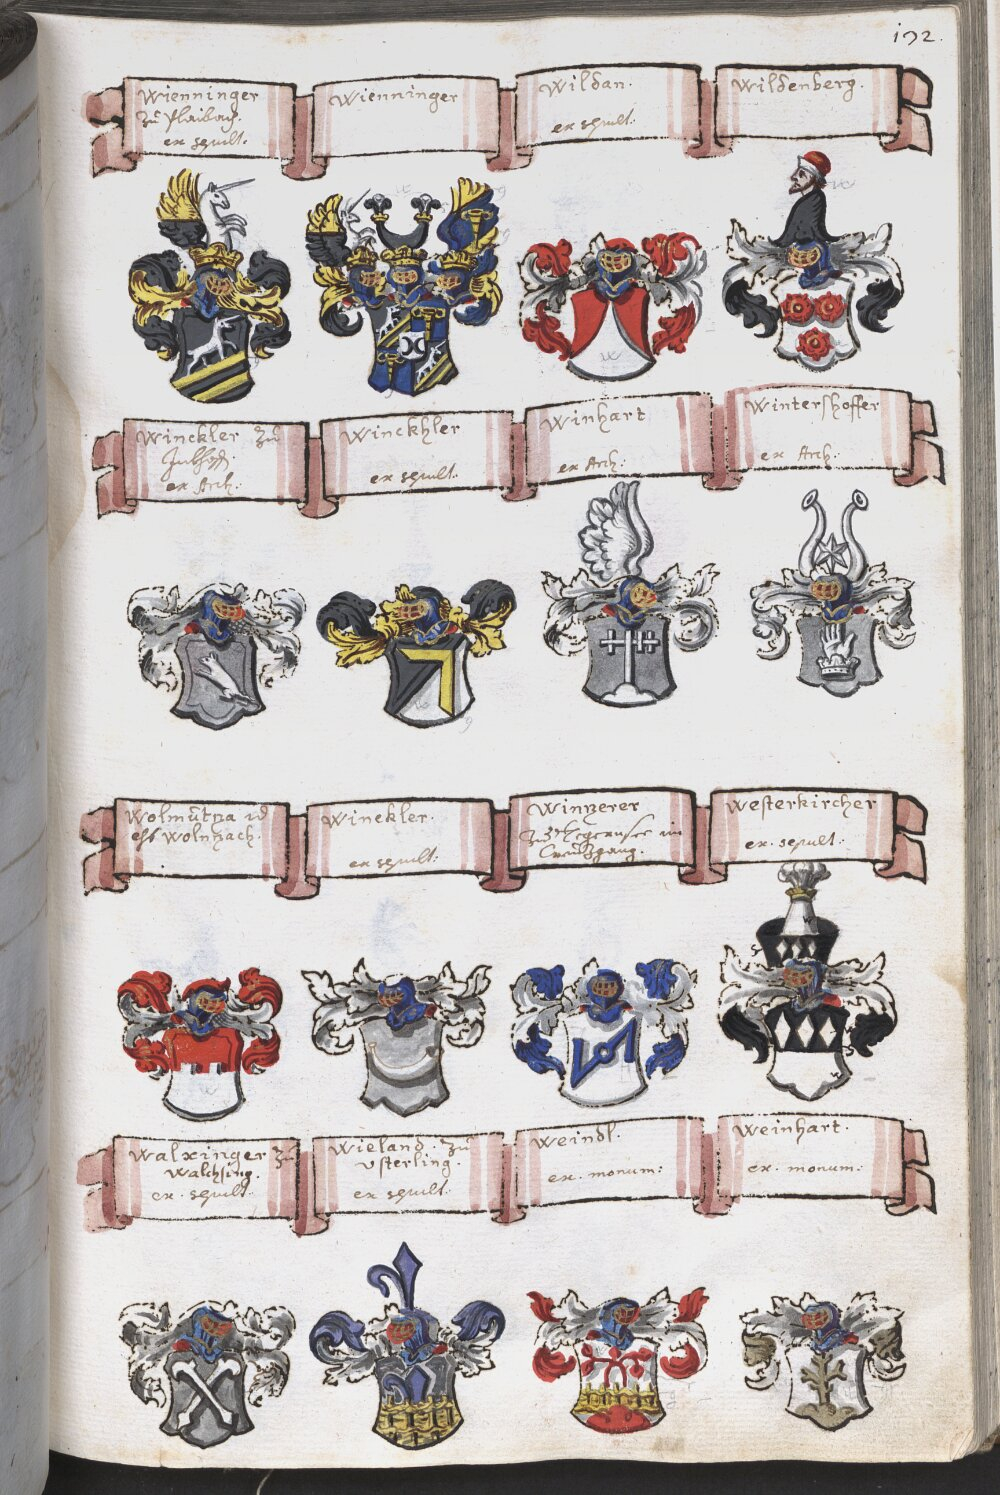 192.
Wienninger
Zu Plaibach.
ex sepult.
Wienninger
Wildan.
ex sepult.
Wildenberg.
Winckler Zu
ex Arch.
Winckhler
ex sepult.
Winhart
ex Arch.
Wintershoffer
ex Arch.
Wolmutza id
est Wolnzach.
Winckler.
ex sepult:
Winzerer
Zu Tegernsee im
Creutzgang.
Westerkircher
ex. sepult:
Walxinger Zu
Walchsing.
ex. sepult.
Wieland. Zu
Usterling.
ex sepult:
Weindl.
ex. monum:
Weinhart.
ex. monum: